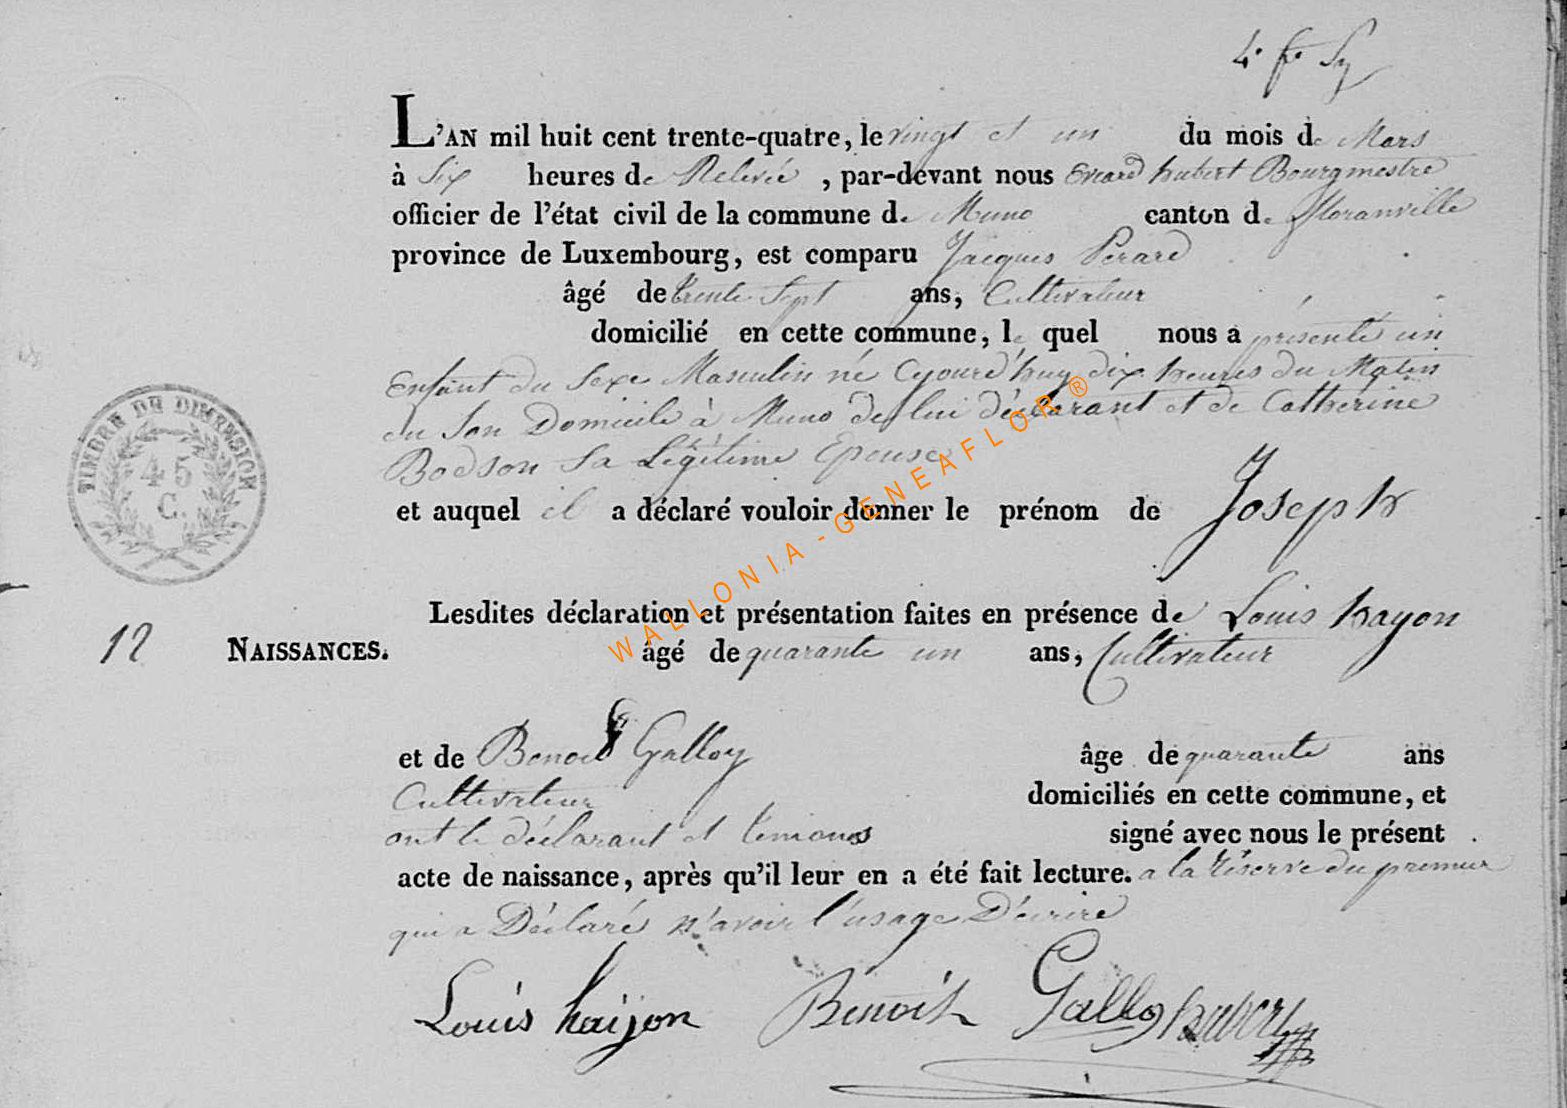 4e fo Sy
L'AN mil huit cent trente-quatre, le vingt et un du mois de Mars
à Six heures de Relevée , par-devant nous Evrard hubert Bourgmestre
officier de l'état civil de la commune de Muno canton de floranville
province de Luxembourg, est comparu Jacques Perard
âgé de trente Sept ans, Cultivateur
domicilié en cette commune, le quel nous a présenté un
Enfant du Sexe Masculin né Cejourd'huy dix heures du Matin
en Son Domicile à Muno de lui déclarant et de Catherine
Bodson Sa Légitime Epouse
et auquel il a déclaré vouloir donner le prénom de Joseph
TIMBRE DE DIMENSION
45
C.
Lesdites déclaration et présentation faites en présence de Louis hayon
12 NAISSANCES. âgé de quarante un ans, Cultivateur
et de Benoit Galloy âge de quarante ans
Cultivateur domiciliés en cette commune, et
ont le déclarant et témoins signé avec nous le présent
acte de naissance, après qu'il leur en a été fait lecture. a la réserve du premier
qui a Déclaré n'avoir l'usage D'écrire
Louis haijon Benoit Gallo hubert
WALLONIA - GENEAFLOR ®